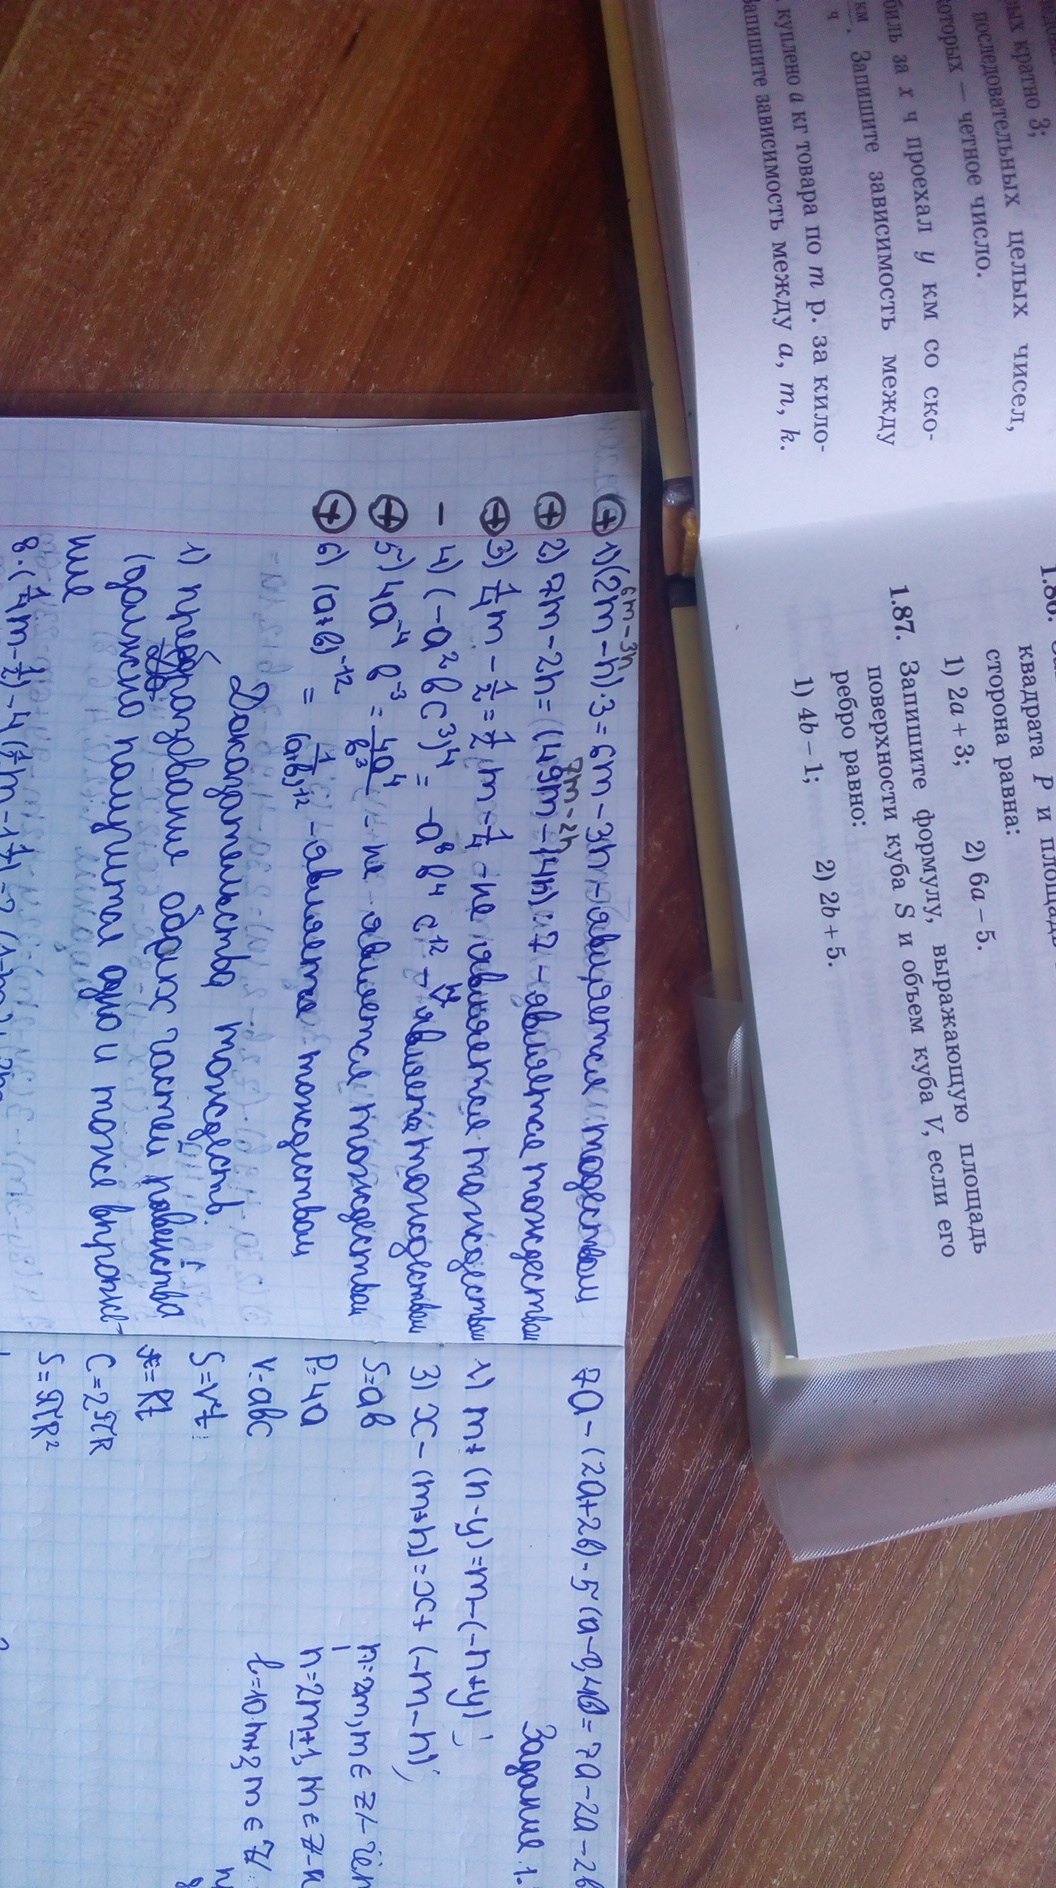 рых кратно 3;
последовательных целых чисел,
которых — четное число.
биль за x ч проехал y км со ско-
км
ч
. Запишите зависимость между
куплено a кг товара по m р. за кило-
Запишите зависимость между a, m, k.
квадрата P и площадь
сторона равна:
1) 2a + 3; 2) 6a − 5.
1.87. Запишите формулу, выражающую площадь
поверхности куба S и объем куба V, если его
ребро равно:
1) 4b − 1; 2) 2b + 5.
6m − 3n
+ 1) (2m − n) · 3 = 6m − 3n − является тодеством
7m − 2n
+ 2) 7m − 2n = (49m − 14n) : 7 − является тождеством
+ 3) 1/4 m − 1/2 = 1/2 m − 1/4 − не является тождеством
− 4) (−a² b c³)⁴ = −a⁸ b⁴ c¹² − является тождеством
+ 5) 4a⁻⁴ b⁻³ = 4a⁴/b³ − не является тождеством
+ 6) (a+b)⁻¹² = 1/(a+b)⁺¹² − является тождеством
Доказательства тождеств.
1) преобразование обоих частей равенства
(должно получится одно и тоже выраже-
ние
7a − (2a+2b) − 5(a − 0,4b) = 7a − 2a − 2b
Задание 1.
1) m + (n − y) = m − (−n + y);
3) x − (m + n) = x + (−m − n);
S = ab
P = 4a
V = abc
S = v·t
C = 2πR
S = πR²
n = 2m, m ∈ Z
n = 2m+1, m ∈ Z